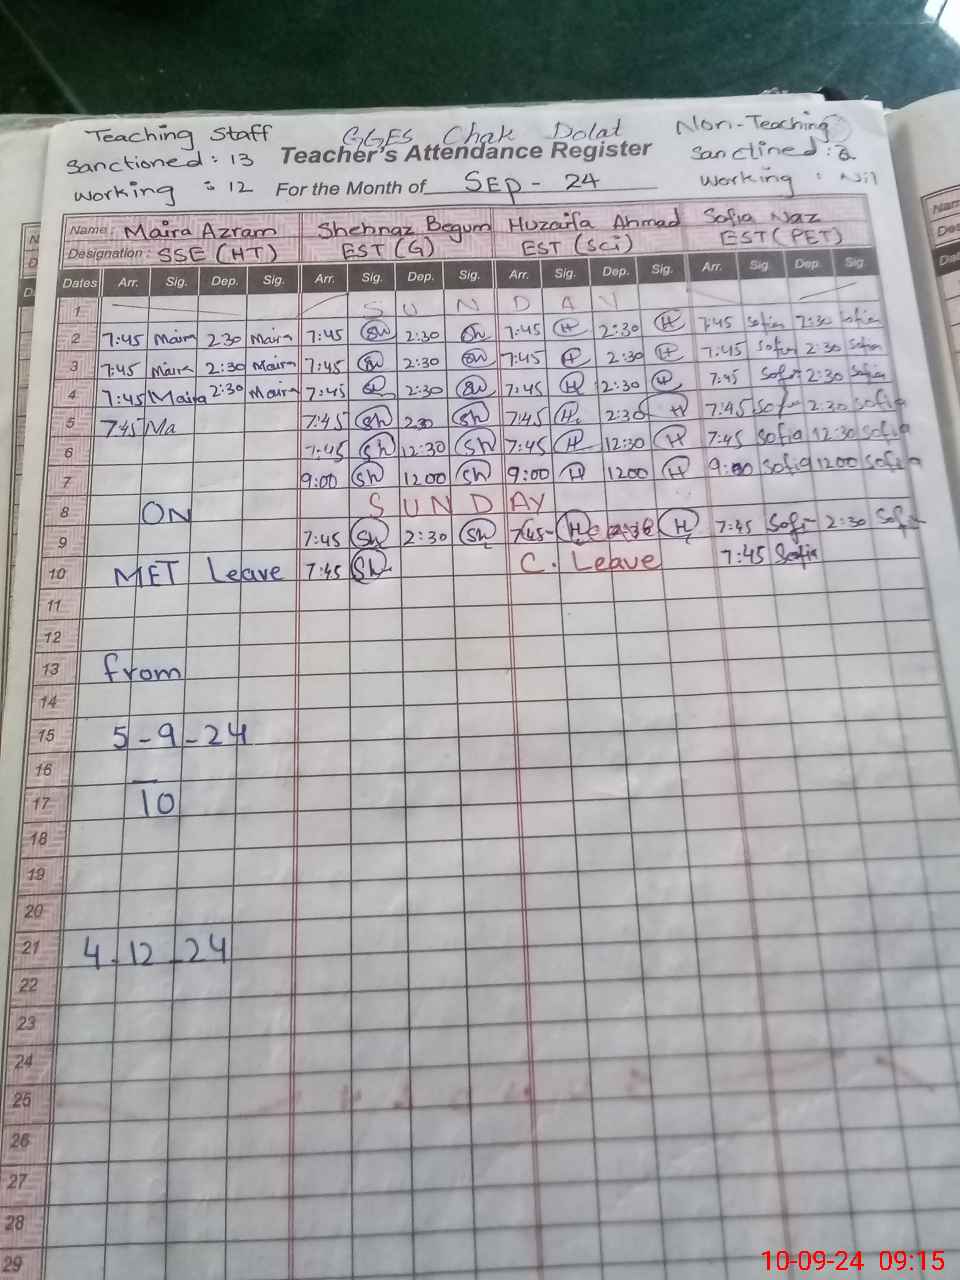 Teaching Staff GGES Chak Dolat Non-Teaching
Sanctioned: 13 Teacher's Attendance Register Sanctined: 2
Working : 12 For the Month of Sep - 24 Working : Nil
Name: Maira Azram Shehnaz Begum Huzaifa Ahmad Sofia Naz
Designation: SSE (HT) EST (G) EST (Sci) EST (PET)
Dates Arr. Sig. Dep. Sig. Arr. Sig. Dep. Sig. Arr. Sig. Dep. Sig. Arr. Sig. Dep. Sig.
1 SUNDAY
2 7:45 Maira 2:30 Maira 7:45 Sh 2:30 Sh 7:45 H 2:30 H 7:45 Sofia 2:30 Sofia
3 7:45 Maira 2:30 Maira 7:45 Sh 2:30 Sh 7:45 H 2:30 H 7:45 Sofia 2:30 Sofia
4 7:45 Maira 2:30 Maira 7:45 Sh 2:30 Sh 7:45 H 2:30 H 7:45 Sofia 2:30 Sofia
5 7:45 Ma 7:45 Sh 2:30 Sh 7:45 H 2:30 H 7:45 Sofia 2:30 Sofia
6 7:45 Sh 12:30 Sh 7:45 H 12:30 H 7:45 Sofia 12:30 Sofia
7 9:00 Sh 1200 Sh 9:00 H 1200 H 9:00 Sofia 1200 Sofia
8 ON SUNDAY
9 7:45 Sh 2:30 Sh 7:45 H H 7:45 Sofi 2:30 Sofi
10 MET Leave 7:45 Sh C. Leave 7:45 Sofia
11
12
13 from
14
15 5-9-24
16
17 10
18
19
20
21 4-12-24
22
23
24
25
26
27
28
29
10-09-24 09:15